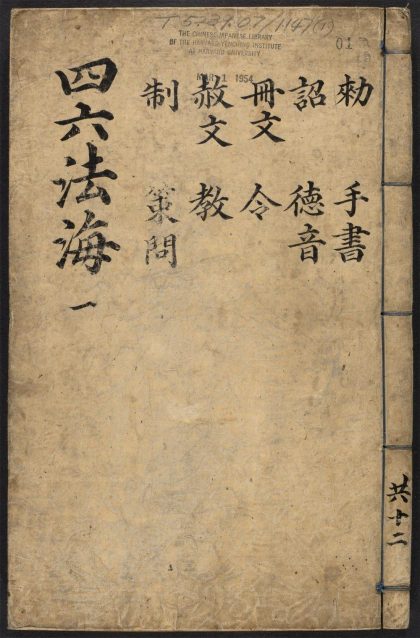 T 5239.07/1141 (1)
THE CHINESE-JAPANESE LIBRARY
OF THE HARVARD-YENCHING INSTITUTE
AT HARVARD UNIVERSITY
MAR 1 1954
勑 手書
詔 德音
冊文 令
赦文 教
制 策問
四六法海 一
共十二